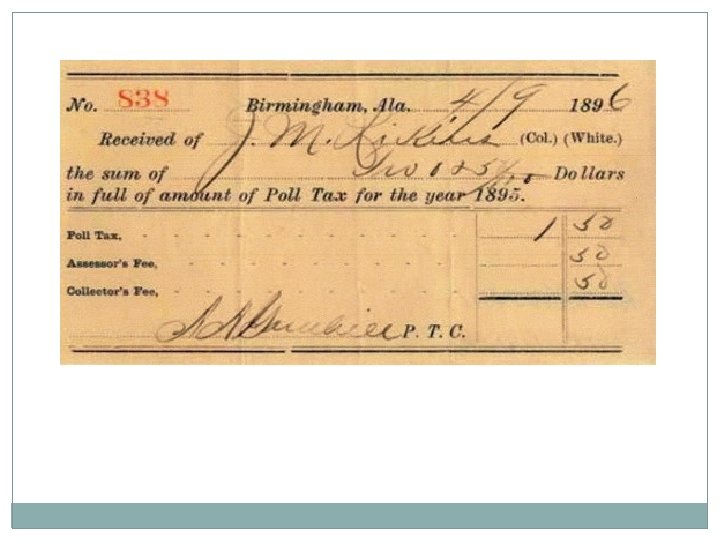 No. 838 Birmingham, Ala. 4/9 1896
Received of J. M. (Col.) (White.)
the sum of Dollars
in full of amount of Poll Tax for the year 1895.
Poll Tax, 1 50
Assessor's Fee, 50
Collector's Fee, 50
P. T. C.